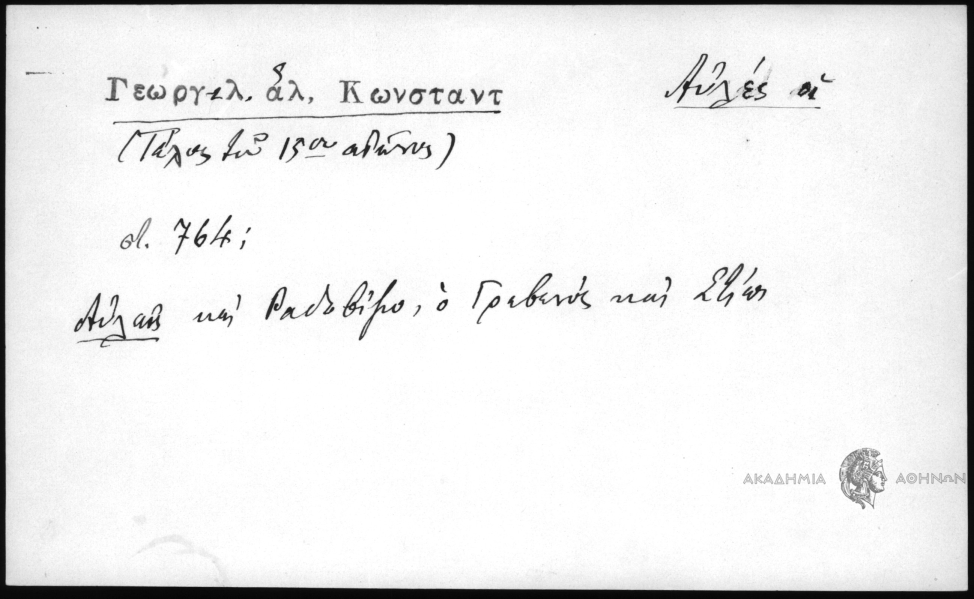 Γεωργιλ. ἅλ. Κωνσταντ
Αὐλές οἱ
(Τέλος τοῦ 15ου αἰῶνος)
στ. 764;
Αὐλαῖς καὶ Ραδοβίζι, ὁ Γρεβενός καὶ
ΑΚΑΔΗΜΙΑ ΑΘΗΝΩΝ